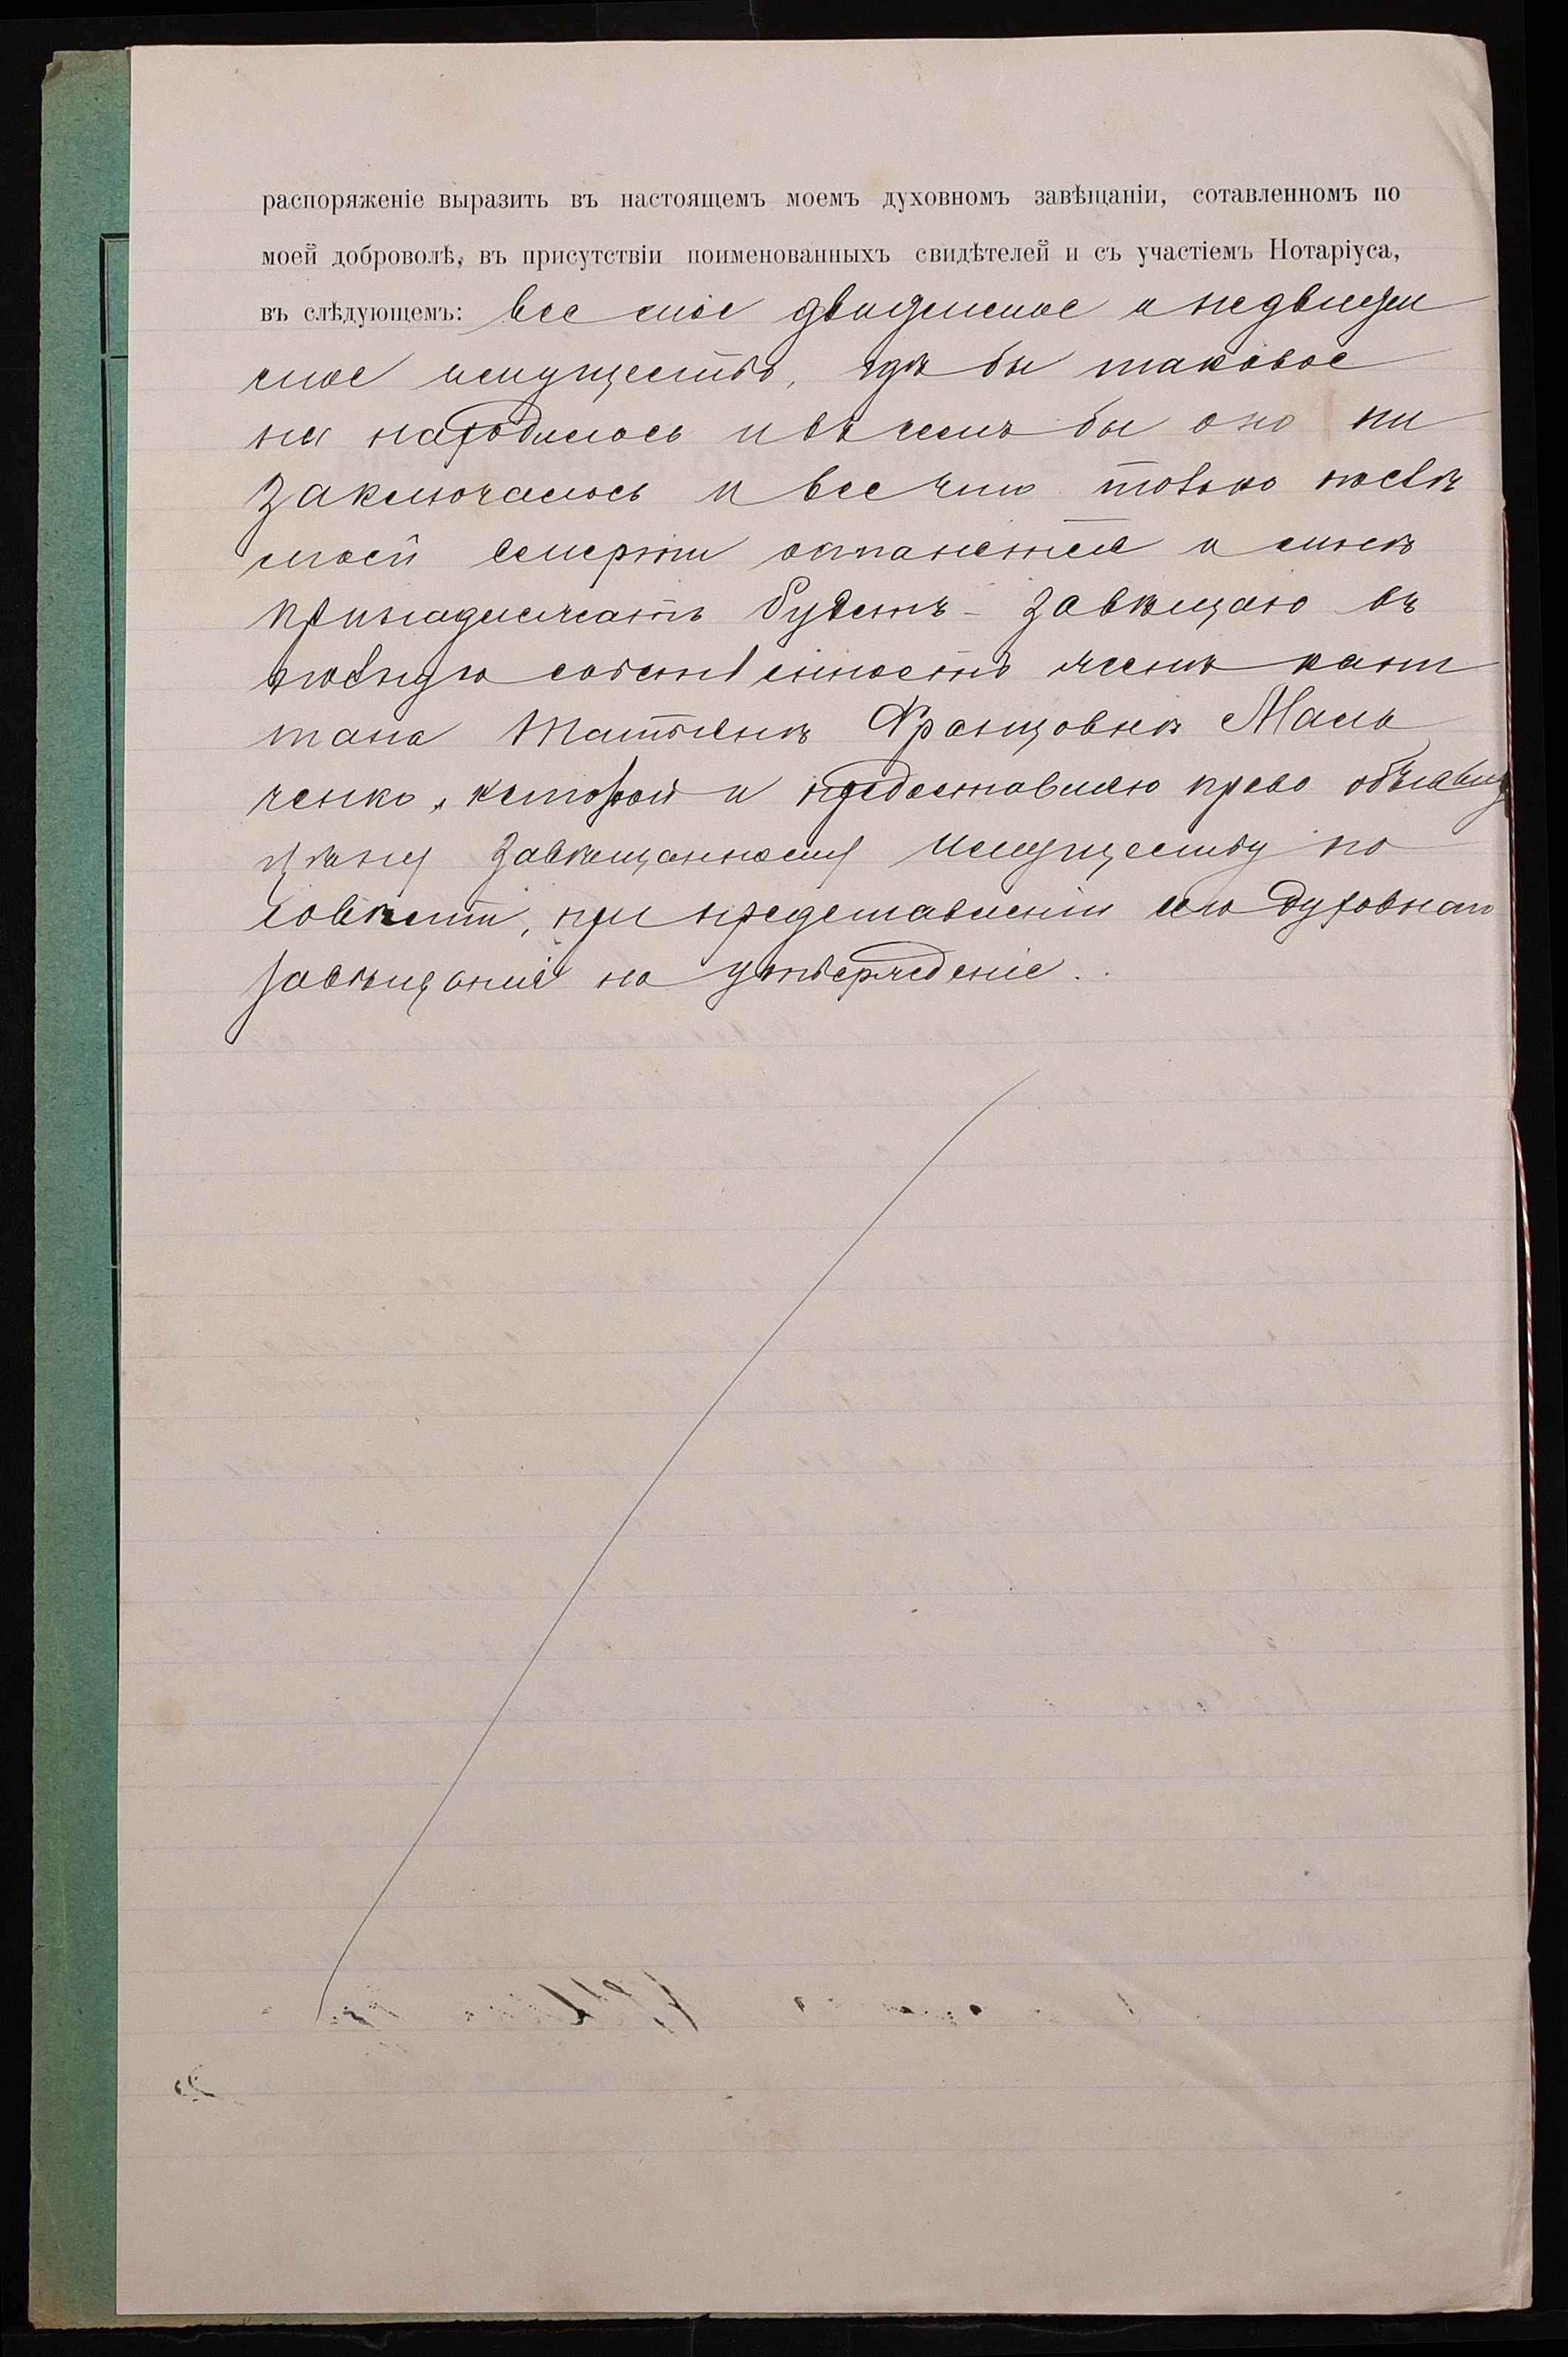 распоряженіе выразить въ настоящемъ моемъ духовномъ завѣщаніи, сотавленномъ по
моей доброволѣ, въ присутствіи поименованныхъ свидѣтелей и съ участіемъ Нотаріуса,
въ слѣдующемъ: все мое движимое и недвижи
мое имущество, гдѣ бы таковое
ни находилось и въ чемъ бы оно ни
заключалось и все что только послѣ
моей смерти останется и мнѣ
принадлежать будетъ – завѣщаю въ
полную собственность женѣ капи
тана Татьянѣ Францовнѣ Маль
ченко, которой и предоставляю право объявить
цѣну завѣщанному имуществу по
совѣсти, при представленіи сего духовнаго
завѣщанія на утвержденіе.